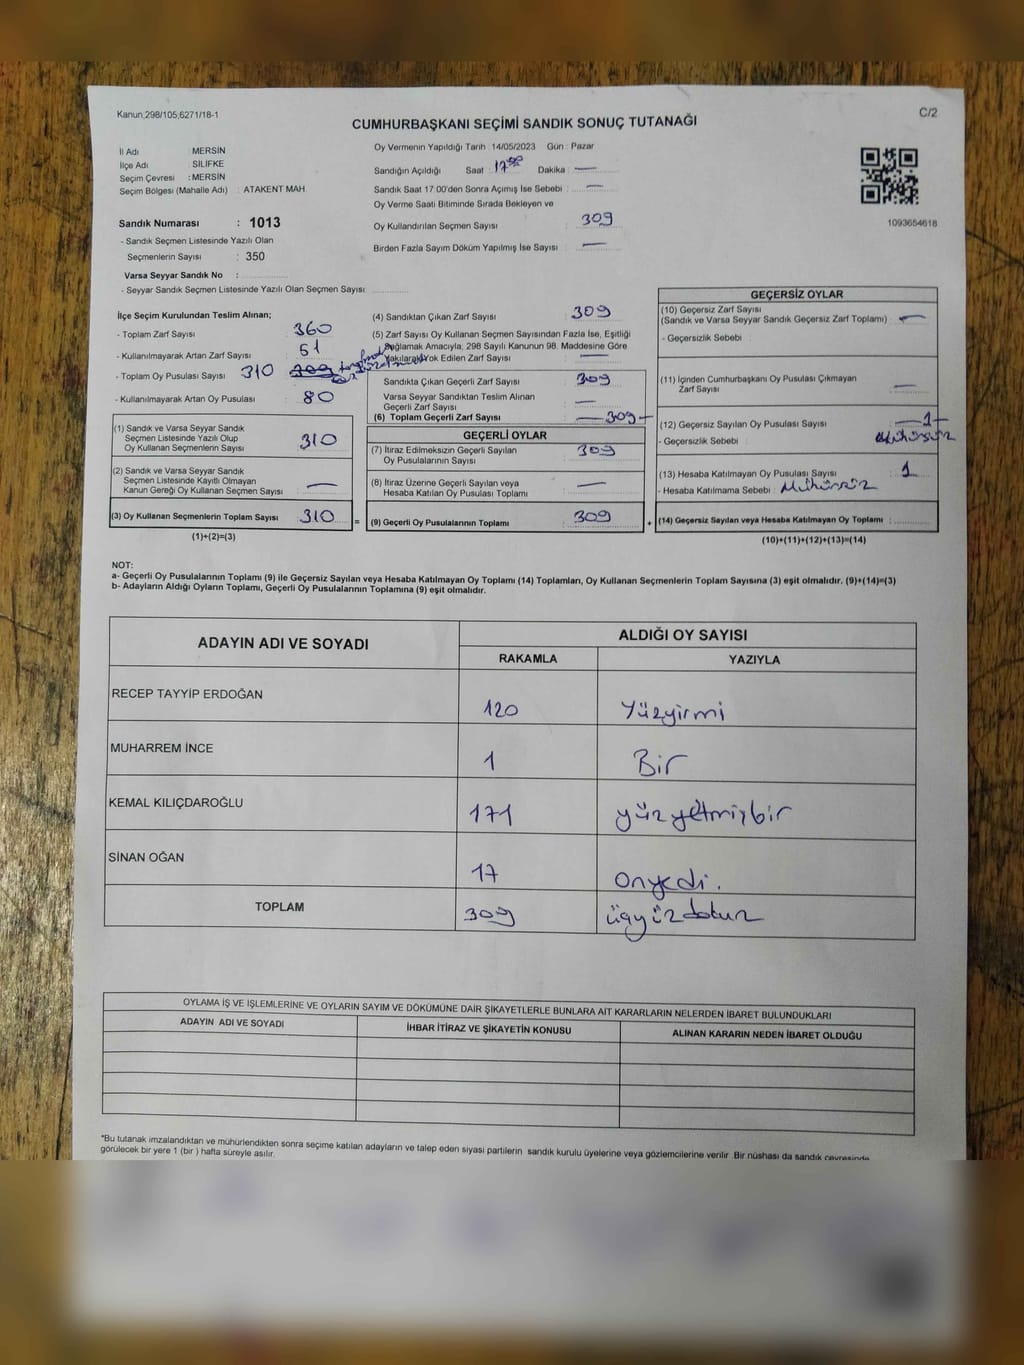 Kanun,298/105,6271/18-1
C/2
CUMHURBAŞKANI SEÇİMİ SANDIK SONUÇ TUTANAĞI
İl Adı : MERSİN
İlçe Adı : SİLİFKE
Seçim Çevresi : MERSİN
Seçim Bölgesi (Mahalle Adı) : ATAKENT MAH.
Sandık Numarası : 1013
- Sandık Seçmen Listesinde Yazılı Olan
Seçmenlerin Sayısı : 350
Varsa Seyyar Sandık No :
- Seyyar Sandık Seçmen Listesinde Yazılı Olan Seçmen Sayısı:
Oy Vermenin Yapıldığı Tarih :14/05/2023 Gün : Pazar
Sandığın Açıldığı Saat : 17 00 Dakika : —
Sandık Saat 17:00'den Sonra Açımış İse Sebebi : —
Oy Verme Saati Bitiminde Sırada Bekleyen ve
Oy Kullandırılan Seçmen Sayısı : 309
Birden Fazla Sayım Döküm Yapılmış İse Sayısı : —
1093654618
İlçe Seçim Kurulundan Teslim Alınan;
- Toplam Zarf Sayısı : 360
- Kullanılmayarak Artan Zarf Sayısı : 61
- Toplam Oy Pusulası Sayısı 310
- Kullanılmayarak Artan Oy Pusulası : 80
(1) Sandık ve Varsa Seyyar Sandık
Seçmen Listesinde Yazılı Olup
Oy Kullanan Seçmenlerin Sayısı : 310
(2) Sandık ve Varsa Seyyar Sandık
Seçmen Listesinde Kayıtlı Olmayan
Kanun Gereği Oy Kullanan Seçmen Sayısı : —
(3) Oy Kullanan Seçmenlerin Toplam Sayısı : 310
(1)+(2)=(3)
(4) Sandıktan Çıkan Zarf Sayısı : 309
(5) Zarf Sayısı Oy Kullanan Seçmen Sayısından Fazla İse, Eşitliği
Sağlamak Amacıyla, 298 Sayılı Kanunun 98. Maddesine Göre
Yakılarak Yok Edilen Zarf Sayısı : —
Sandıkta Çıkan Geçerli Zarf Sayısı : 309
Varsa Seyyar Sandıktan Teslim Alınan
Geçerli Zarf Sayısı : —
(6) Toplam Geçerli Zarf Sayısı : —309—
GEÇERLİ OYLAR
(7) İtiraz Edilmeksizin Geçerli Sayılan
Oy Pusulalarının Sayısı : 309
(8) İtiraz Üzerine Geçerli Sayılan veya
Hesaba Katılan Oy Pusulası Toplamı : —
= (9) Geçerli Oy Pusulalarının Toplamı : 309 +
GEÇERSİZ OYLAR
(10) Geçersiz Zarf Sayısı
(Sandık ve Varsa Seyyar Sandık Geçersiz Zarf Toplamı) : —
- Geçersizlik Sebebi :
(11) İçinden Cumhurbaşkanı Oy Pusulası Çıkmayan
Zarf Sayısı : —
(12) Geçersiz Sayılan Oy Pusulası Sayısı : —1—
- Geçersizlik Sebebi : Mühürsüz
(13) Hesaba Katılmayan Oy Pusulası Sayısı : 1
- Hesaba Katılmama Sebebi : Mühürsüz
(14) Geçersiz Sayılan veya Hesaba Katılmayan Oy Toplamı :
(10)+(11)+(12)+(13)=(14)
NOT:
a- Geçerli Oy Pusulalarının Toplamı (9) ile Geçersiz Sayılan veya Hesaba Katılmayan Oy Toplamı (14) Toplamları, Oy Kullanan Seçmenlerin Toplam Sayısına (3) eşit olmalıdır. (9)+(14)=(3)
b- Adayların Aldığı Oyların Toplamı, Geçerli Oy Pusulalarının Toplamına (9) eşit olmalıdır.
ADAYIN ADI VE SOYADI
ALDIĞI OY SAYISI
RAKAMLA YAZIYLA
RECEP TAYYİP ERDOĞAN 120 Yüzyirmi
MUHARREM İNCE 1 Bir
KEMAL KILIÇDAROĞLU 171 yüzyetmişbir
SİNAN OĞAN 17 onyedi.
TOPLAM 309 üçyüzdokuz
OYLAMA İŞ VE İŞLEMLERİNE VE OYLARIN SAYIM VE DÖKÜMÜNE DAİR ŞİKAYETLERLE BUNLARA AİT KARARLARIN NELERDEN İBARET BULUNDUKLARI
ADAYIN ADI VE SOYADI İHBAR İTİRAZ VE ŞİKAYETİN KONUSU ALINAN KARARIN NEDEN İBARET OLDUĞU
*Bu tutanak imzalandıktan ve mühürlendikten sonra seçime katılan adayların ve talep eden siyasi partilerin sandık kurulu üyelerine veya gözlemcilerine verilir. Bir nüshası da sandık çevresinde
görülecek bir yere 1 (bir ) hafta süreyle asılır.